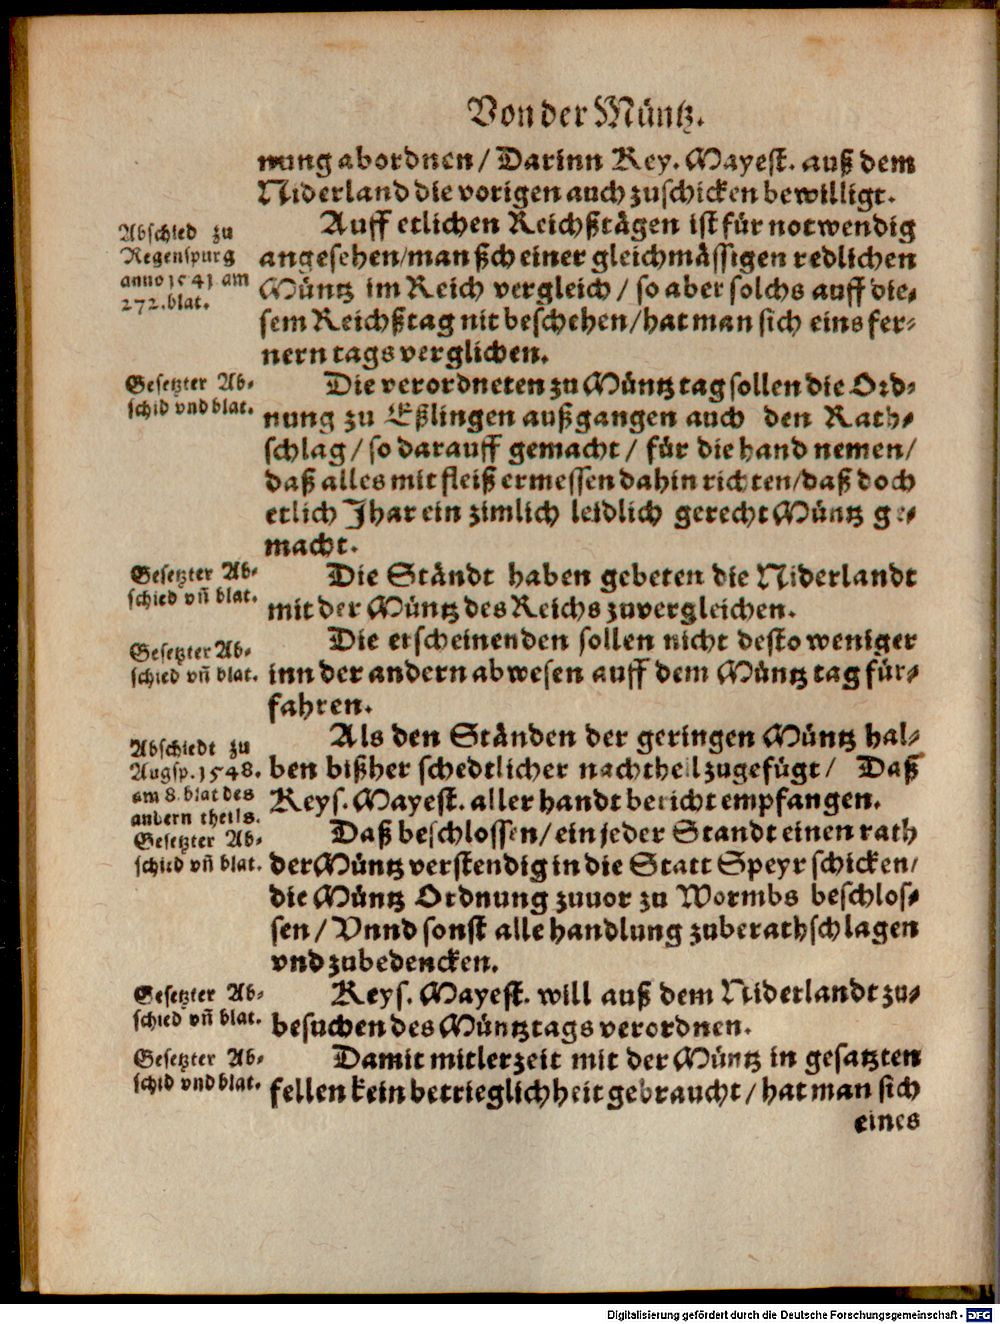 Von der Müntz.
nung abordnen / Darinn Key. Mayest. auß dem
Niderland die vorigen auch zuschicken bewilligt.
Abschied zu
Regenspurg
anno 1541 am
272. blat.
Auff etlichen Reichßtägen ist für notwendig
angesehen / man ßch einer gleichmässigen redlichen
Müntz im Reich vergleich / so aber solchs auff die-
sem Reichßtag nit beschehen / hat man sich eins fer-
nern tags verglichen.
Gesetzter Ab-
schid vnd blat.
Die verordneten zu Müntz tag sollen die Ord-
nung zu Eßlingen außgangen auch den Rath-
schlag / so darauff gemacht / für die hand nemen /
daß alles mit fleiß ermessen dahin richten / daß doch
etlich Jhar ein zimlich leidlich gerecht Müntz ge-
macht.
Gesetzter Ab-
schied vñ blat.
Die Ständt haben gebeten die Niderlandt
mit der Müntz des Reichs zuvergleichen.
Gesetzter Ab-
schied vñ blat.
Die erscheinenden sollen nicht desto weniger
inn der andern abwesen auff dem Müntz tag für-
fahren.
Abschiedt zu
Augsp. 1548.
am 8. blat des
andern theils.
Als den Ständen der geringen Müntz hal-
ben bißher schedtlicher nachtheil zugefügt / Daß
Keys. Mayest. aller handt bericht empfangen.
Gesetzter Ab-
schied vñ blat.
Daß beschlossen / ein jeder Standt einen rath
der Müntz verstendig in die Statt Speyr schicken /
die Müntz Ordnung zuuor zu Wormbs beschlos-
sen / Vnnd sonst alle handlung zuberathschlagen
vnd zubedencken.
Gesetzter Ab-
schied vñ blat.
Keys. Mayest. will auß dem Niderlandt zu-
besuchen des Müntztags verordnen.
Gesetzter Ab-
schid vnd blat.
Damit mitlerzeit mit der Müntz in gesatzten
fellen kein betrieglichheit gebraucht / hat man sich
eines
Digitalisierung gefördert durch die Deutsche Forschungsgemeinschaft - DFG